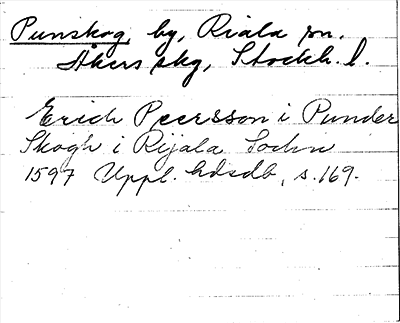 Punskog, by, Riala sn.
Åkers skg, Stockh. l.
Erich Peersson i Punder
Skogh i Rijala Sochn
1597 Uppl. hdsdb, s. 169.